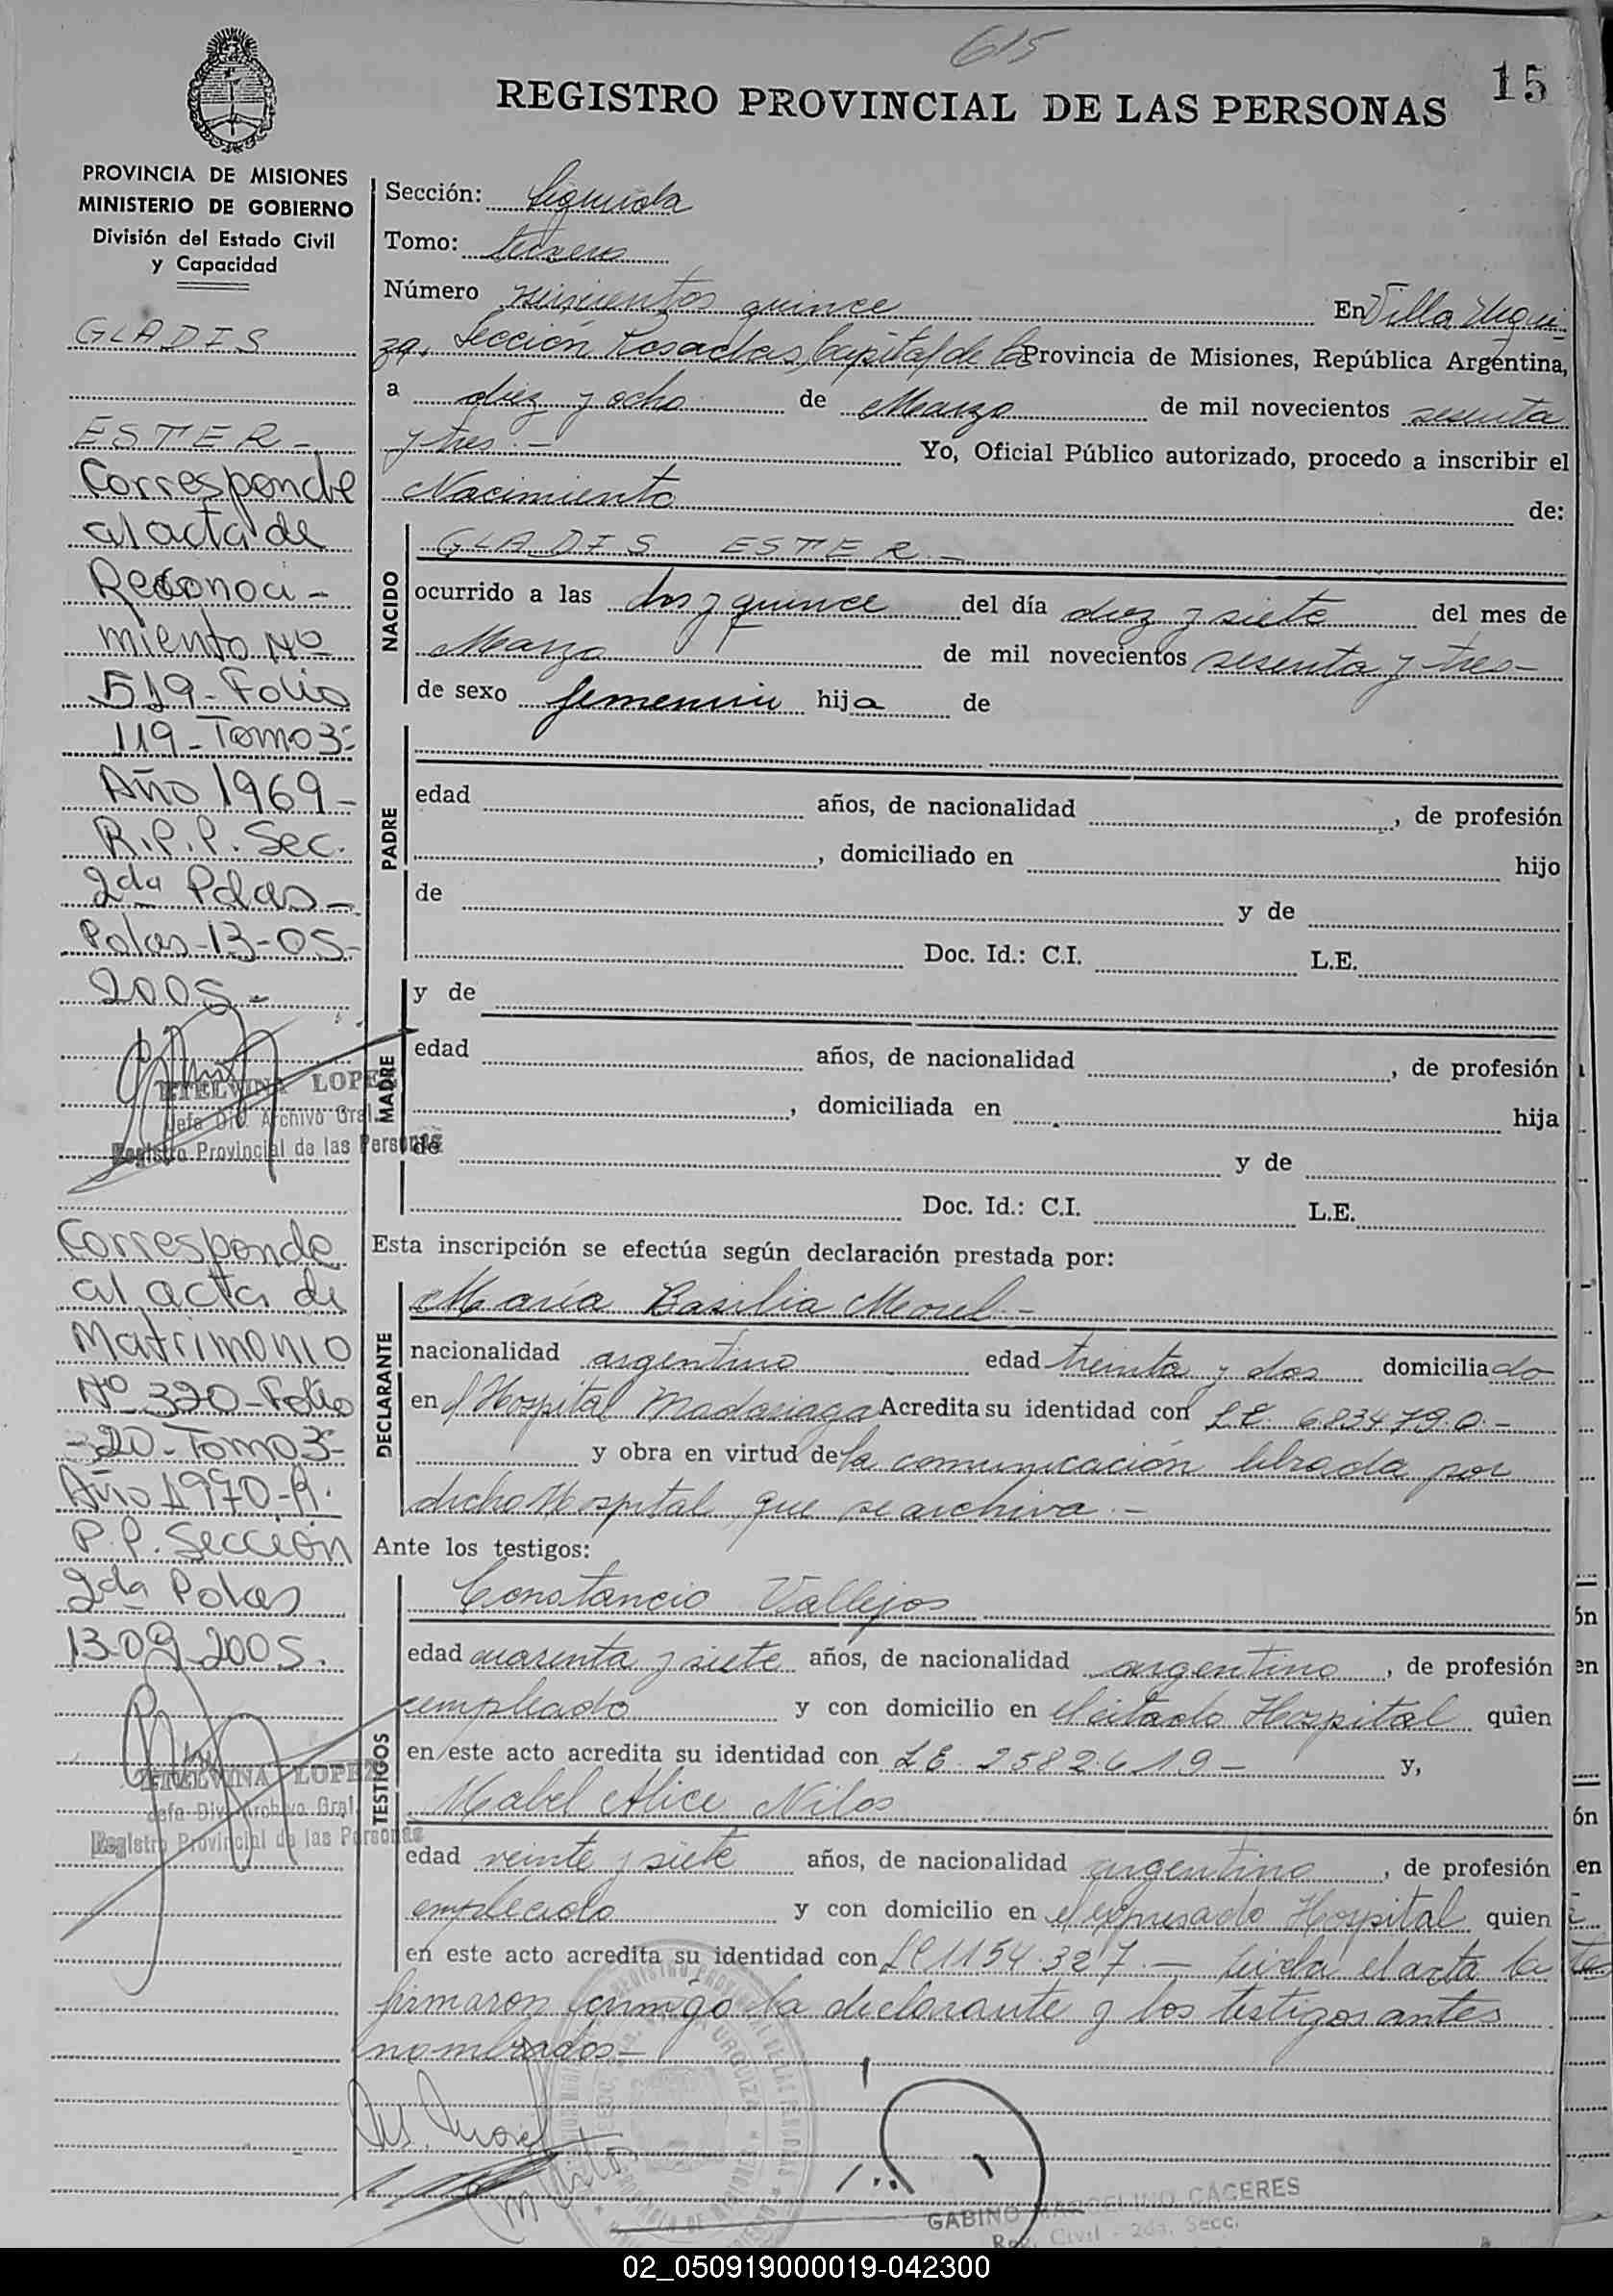 615
15
REGISTRO PROVINCIAL DE LAS PERSONAS
PROVINCIA DE MISIONES
MINISTERIO DE GOBIERNO
División del Estado Civil
y Capacidad
GLADIS
ESTER -
Corresponde
al acta de
Reconoci -
miento Nº
519 - Folio
119 - Tomo 3º
Año 1969 -
R.P.P. Sec.
2da Pdas -
Pdas - 13 - 05 -
2005 -
ETELVINA LOPEZ
Jefa Div. Archivo Gral
Registro Provincial de las Personas
Corresponde
al acta de
Matrimonio
Nº 320 - Folio
- 20 - Tomo 3º
Año 1970 - R.
P.P. Sección
2da Pdas
13-09-2005.
ETELVINA LOPEZ
Jefa Div. Archivo Gral
Registro Provincial de las Personas
Sección: Segunda
Tomo: tercero
Número seiscientos quince En Villa Urqui
za, Sección Posadas, Capital de la Provincia de Misiones, República Argentina,
a diez y ocho de Marzo de mil novecientos sesenta
y tres.- Yo, Oficial Público autorizado, procedo a inscribir el
Nacimiento de:
NACIDO
GLADIS ESTER.-
ocurrido a las dos y quince del día diez y siete del mes de
Marzo de mil novecientos sesenta y tres-
de sexo femenino hija de
PADRE
edad años, de nacionalidad , de profesión
, domiciliado en hijo
de y de
Doc. Id.: C.I. L.E.
MADRE
y de
edad años, de nacionalidad , de profesión
, domiciliada en hija
de y de
Doc. Id.: C.I. L.E.
Esta inscripción se efectúa según declaración prestada por:
DECLARANTE
María Basilia Morel.-
nacionalidad argentina edad treinta y dos domiciliado
en el Hospital Madariaga Acredita su identidad con L.E. 6.834.790.-
y obra en virtud de la comunicación librada por
dicho Hospital, que se archiva.-
Ante los testigos:
TESTIGOS
Constancio Vallejos
edad cuarenta y siete años, de nacionalidad argentino , de profesión
empleado y con domicilio en el citado Hospital quien
en este acto acredita su identidad con L.E. 2.582.619- y,
Mabel Alice Nilos
edad veinte y siete años, de nacionalidad argentina , de profesión
empleada y con domicilio en el expresado Hospital quien
en este acto acredita su identidad con LC 1154.327.- Leída el acta la
firmaron conmigo la declarante y los testigos antes
nombrados-
M. Morel
GABINO MARCELINO CACERES
Reg. Civil - 2da. Secc.
02_050919000019-042300